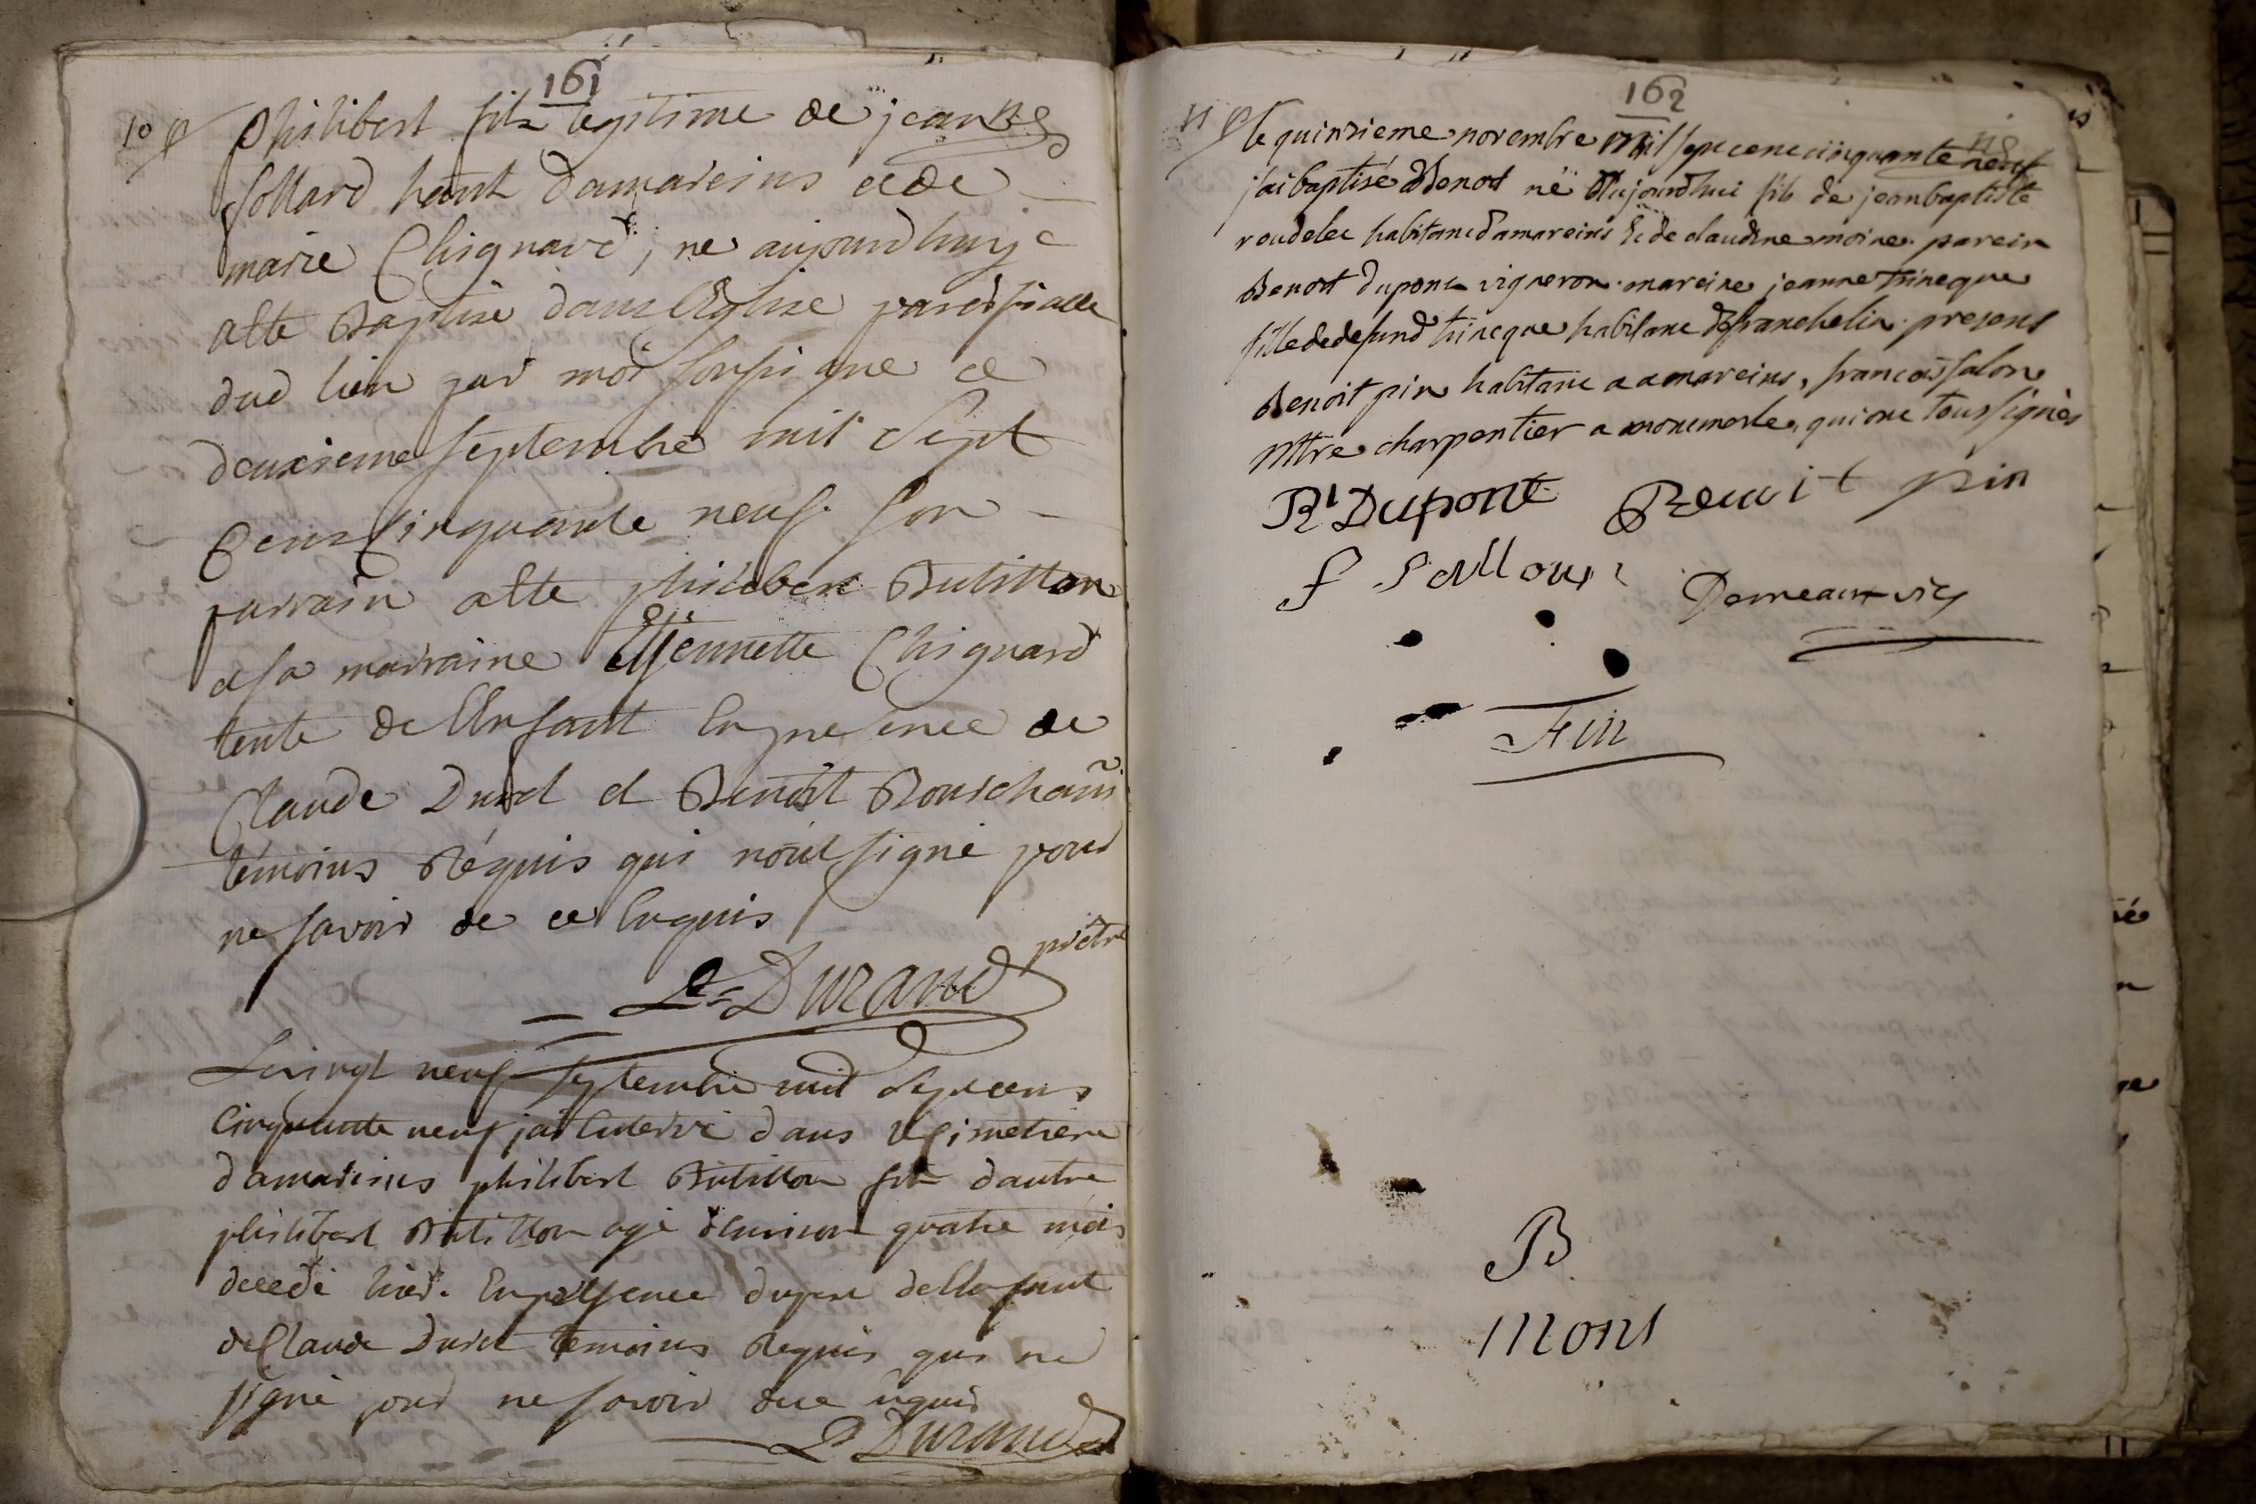 161
10 Philibert fils legitime de jean
follard habit damareins et de
marie Chignard, ne aujourdhuy
atte Baptise dans l'Eglise paroissialle
dud lieu par moi soussigne ce
deuxieme septembre mil sept
Cens Cinquante neuf. son
parrain atte philibert Butillon
a sa marraine Etjennette Chignard
tente de l'Enfant En presence de
Claude Duret et Benoit Bourchani
témoins Réquis qui nont signé pour
ne savoir de ce Enquis
Ls Durand prêtre
Le vingt neuf septembre mil sept cens
Cinquante neuf jai Enterré dans le Cimetiere
damareins philibert Butillon fils dautre
philibert Butillon agé d'environ quatre mois
decedé hier. En presence du pere de l'Enfant
de Claude Duret temoins Requis qui ne
signé pour ne savoir de ce enquis
Durand
162
11 le quinzieme novembre mil sept cent cinquante neuf
j'ai baptisé Benoit né Aujourdhui fils de jean baptiste
roudelet habitant damareins & de claudine moine. parein
Benoit dupont vigneron. mareine jeanne trincque
fille de defund trincque habitant de franchelin. presens
Benoit pin habitant a amareins, francois salon
Mtre charpentier a monmerle, qui ont tous signès
Bt Dupont Benoit pin
f sallon
Demeaux vic
Fin
B
mons